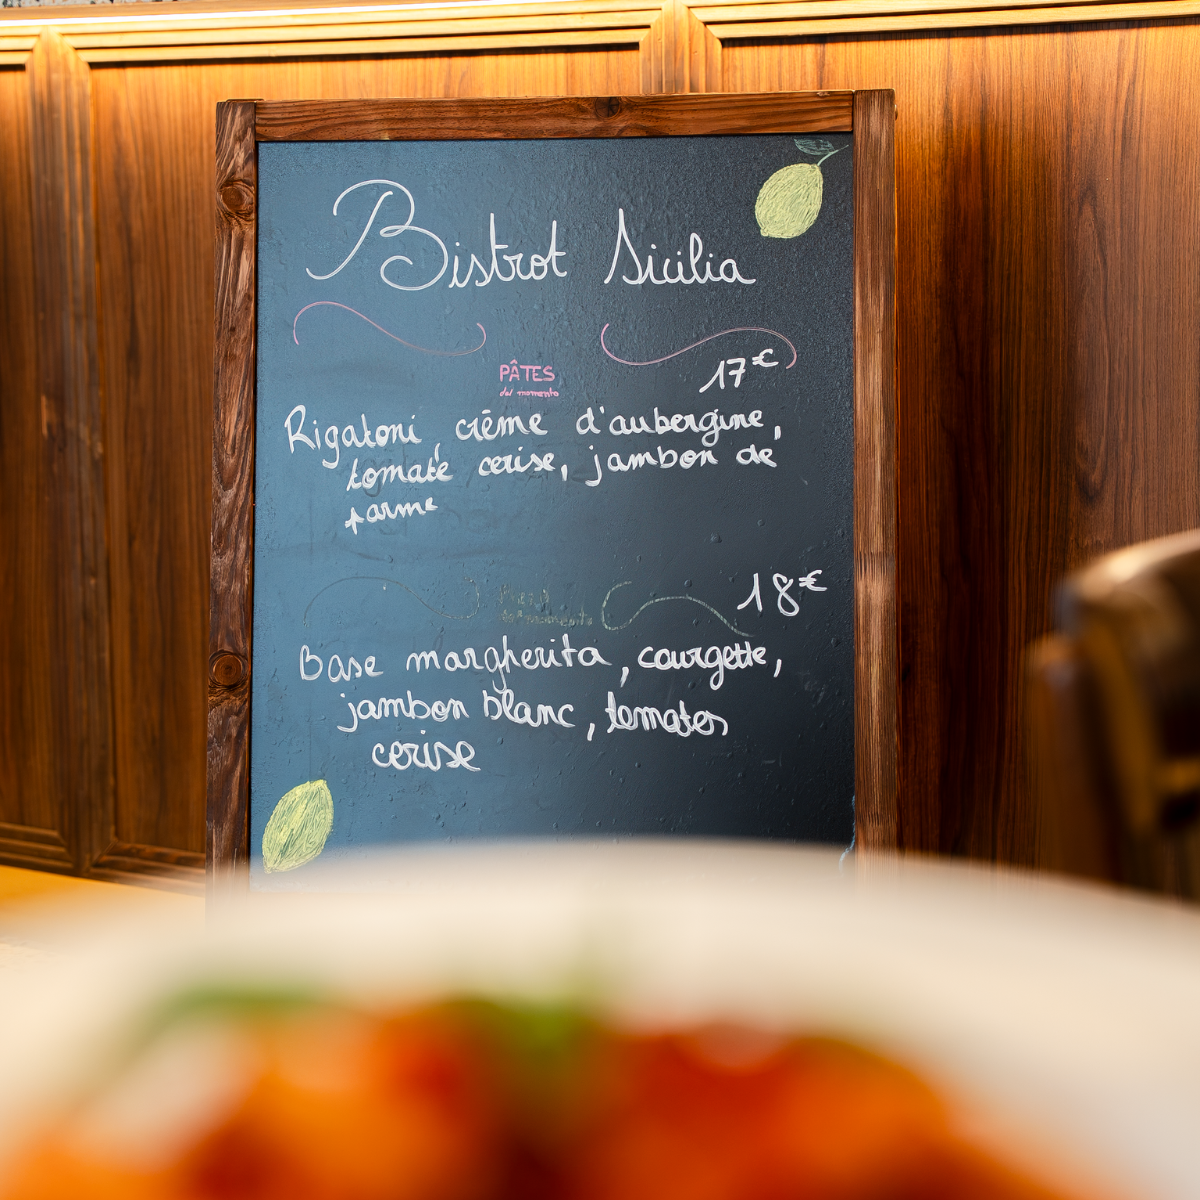 Bistrot Sicilia
PÂTES
del momento
17€
Rigatoni, crème d'aubergine,
tomate cerise, jambon de
parme
18€
Base margherita, courgette,
jambon blanc, tomates
cerise